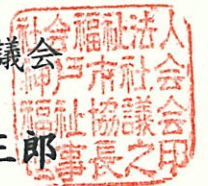 議会
三郎
社会福祉法人
神戸市社会
福祉協議会
事長之印